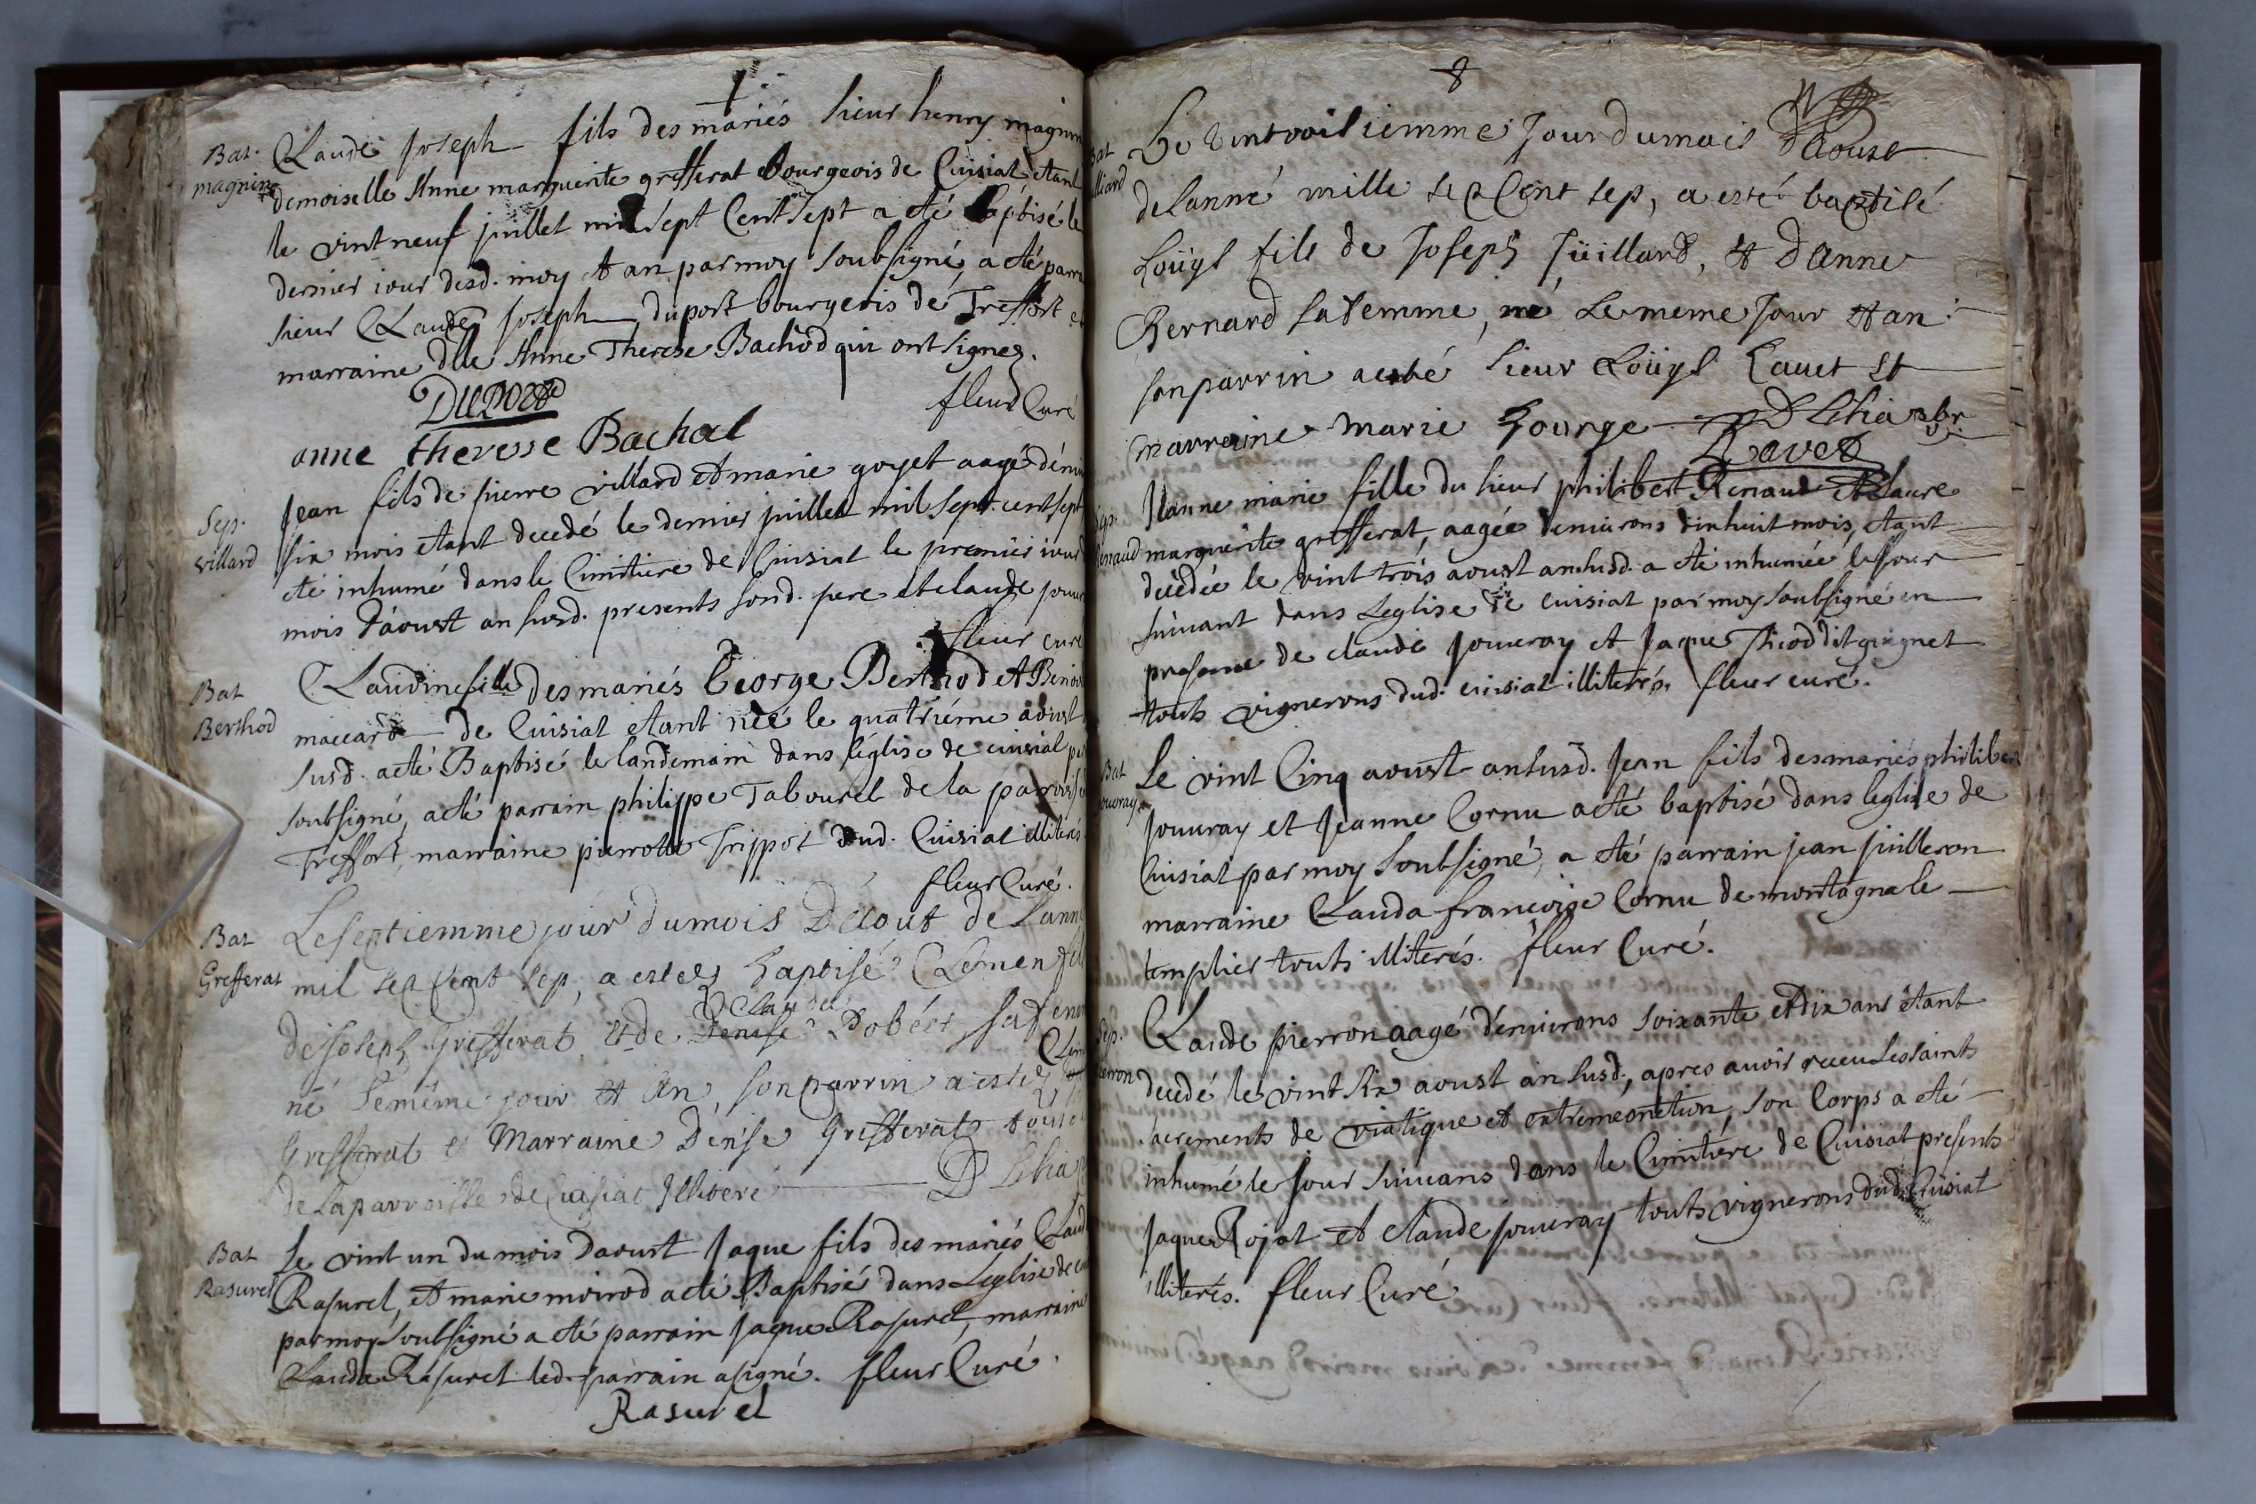 Bat. magnin
Claude Joseph fils des mariés sieur henry magnin
demoiselle Anne marguerite grefferat bourgeois de Cuisiat etant
le vint neuf juillet mil sept Cent sept a eté baptisé le
dernier iour desd. moy et an par moy soubsigné, a eté parra
sieur Claude Joseph duport bourgeois de Treffort et
marraine dlle Anne Therese Bachod qui ont signez.
DUPORT fleur Curé
anne theresse Bachal
Sep. villard
Jean fils de pierre villard et marie goyet aagé dénui
six mois etant decedé le dernier juillet mil sept cent sept
eté inhumé dans le Cimitiere de Cuisiat le premier iour
mois d'aoust an susd. presents sond. pere et claude jouu
fleur curé
Bat Berthod
Claudine fille des mariés George Berthod et Benoi
maccard de Cuisiat etant néé le quatriéme aoust
susd. a eté Baptisé le landemain dans l'église de cuisiat pa
soubsigné, a eté parrain philippe Tabouret de la parroisse
Treffort, marraine pierrotte Trippot dud. Cuisiat illiterés
fleur Curé.
Bat Grefferat
Le septiemme jour du mois D'Aout de Lann
mil sep Cent sep, a estez baptisé Clemen fil
Clauda
de Joseph Grefferat et de Denise Dobéet, sa fem
né le même jour et An, son parrin a estez Clem
Grefferat et Marraine Denise Grefferat tous
de la parroisse de Cuisiat Illiteré D Lhia
Bat Rasurel
Le vint un du mois d'aoust Jaque fils des mariés Claud
Rasurel, et marie moirod a eté Baptisé dans L'eglise de cu
par moy soubsigné a eté parrain Jaque Rasurel, marraine
Clauda Rasurel led. parrain a signé. fleur Curé.
Rasurel
8
Bat
Le vintroisiemme Jour du mois d'Aoust
de Lanné mille sep Cent sep, a esté baptisé
Loüys fils de Joseph Jüillard, et d'Anne
Bernard sa femme, né Le meme Jour et an
son parrin a esté sieur Loüys Rauet et
marraine marie Gourge D Lhia vbr
Ravet
Sep. Renaud
Jeanne marie fille du sieur philibert Renaud et Claure
marguerite grefferat, aagée d'enuirons dixhuit mois, etant
décédée le vint trois aoust an susd. a eté inhumée le Jour
suiuant dans l'eglise de cuisiat par moy soubsigné en
presence de claude Jouuray et Jaque Picod dit guignet
touts vignerons dud. cuisiat illiterés. fleur curé.
Bat Jouuray
Le vint Cinq aoust an susd. Jean fils des mariés philiber
Jouuray et Jeanne Cornu a eté baptisé dans l'eglise de
Cuisiat par moy soubsigné, a eté parrain jean juilleron
marraine Clauda francoise Cornu de montagna le
templier touts illiterés. fleur Curé.
Sep. pierron
Claude pierron aagé d'enuirons soixante et dix ans etant
decedé le vint six aoust an susd., apres auoir receu les saints
sacrements de viatique et extremeonction, son Corps a eté
inhumé le jour suiuans dans le Cimitiere de Cuisiat presents
Jaque Rojat et Claude jouuray touts vignerons dud. Cuisiat
illiterés. fleur Curé